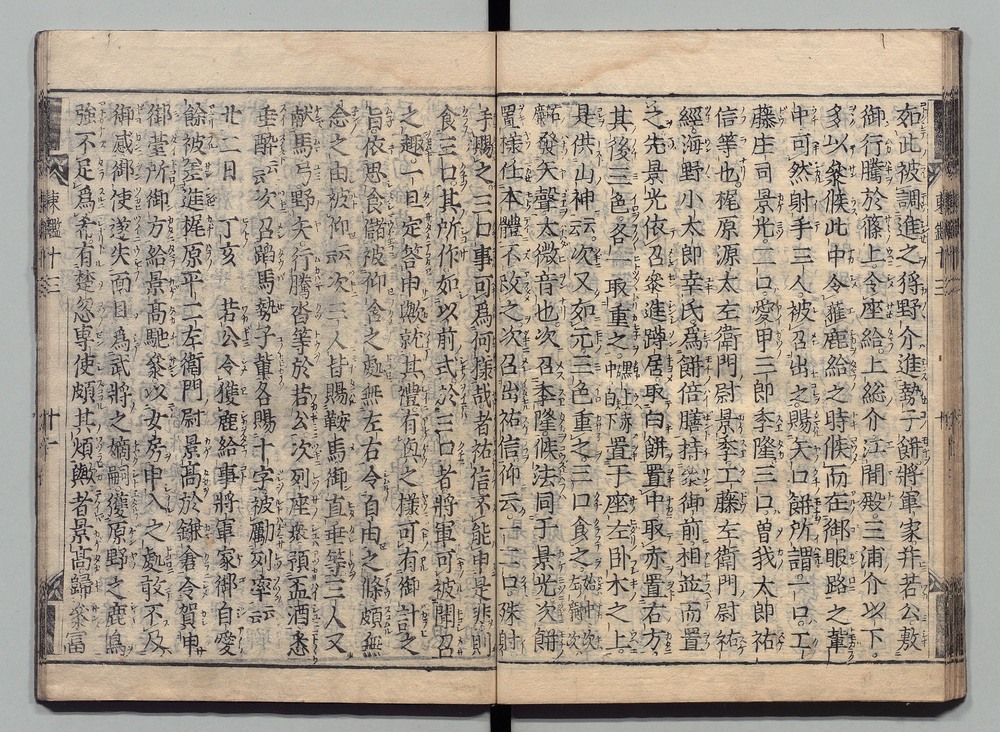 如此被調進之狩野介進勢子餅將軍家并若公敷
御行騰於篠上令座給上総介江間殿三浦介以下
多以参候此中令獲鹿給之時候而在御眼路之輩
中可然射手三人被召出之賜矢口餅所謂一口工
藤庄司景光二口愛甲三郎季隆三口曽我太郎祐
信等也梶原源太左衛門尉景季工藤左衛門尉祐
經海野小太郎幸氏為餅倍膳持参御前相並而置
之先景光依召参進蹲居取白餅置中取赤置右方
其後三色各一取重之黒上赤中白下置于座左臥木之上
是供山神云云次又如元三色重之三口食之始中次左廉次右
發矢聲太微音也次召季隆候法同于景光次餅
置様任本體不改之次召出祐信仰云一二口殊射
手賜之三口事可為何様哉者祐信不能申是非則
食三口其所作如以前式於三口者將軍可被聞召
之趣一旦定答申歟就其禮有興之様可有御計之
旨依思食儲被仰含之處無左右令自由之條頗無
念之由被仰云云次三人皆賜鞍馬御直垂等三人又
献馬弓野矢行騰沓等於若公次列座衆預盃酒悉
垂酔云云次召蹈馬勢子輩各賜十字被勵列率云云
廿二日 丁亥 若公令獲鹿給事將軍家御自愛
餘被差進梶原平二左衛門尉景髙於鎌倉令賀申
御臺所御方給景髙馳参以女房申入之處敢不及
御感御使遂失面目為武將之嫡嗣獲原野之鹿鳥
強不足為奇有楚忽専使頗其煩歟者景髙歸参冨
東鑑十三
廿一